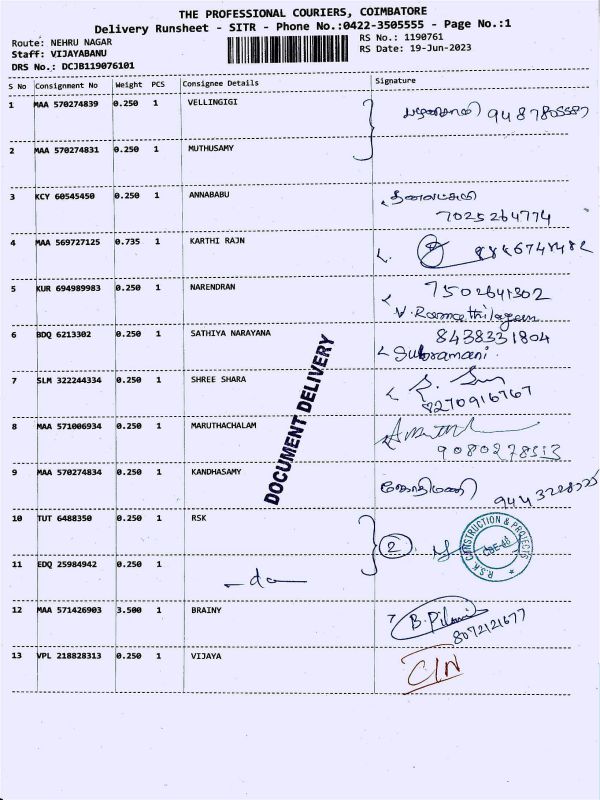 THE PROFESSIONAL COURIERS, COIMBATORE
Delivery Runsheet - SITR - Phone No.:0422-3505555 - Page No.:1
Route: NEHRU NAGAR
Staff: VIJAYABANU
DRS No.: DCJB119076101
RS No.: 1190761
RS Date: 19-Jun-2023
S No Consignment No Weight PCS Consignee Details Signature
1 MAA 570274839 0.250 1 VELLINGIGI பழனிசாமி 9487805587
2 MAA 570274831 0.250 1 MUTHUSAMY
3 KCY 60545450 0.250 1 ANNABABU
7025264774
4 MAA 569727125 0.735 1 KARTHI RAJN
5 KUR 694989983 0.250 1 NARENDRAN 7502641302
V. Ramathilagam
6 BDQ 6213302 0.250 1 SATHIYA NARAYANA 8438331804
Subramani.
7 SLM 322244334 0.250 1 SHREE SHARA
8270916767
8 MAA 571006934 0.250 1 MARUTHACHALAM
9080278513
9 MAA 570274834 0.250 1 KANDHASAMY ஜோதிமணி
10 TUT 6488350 0.250 1 RSK 2
R.S.K CONSTRUCTION & PROJECTS
CBE-46
11 EDQ 25984942 0.250 1 -do-
12 MAA 571426903 3.500 1 BRAINY B.
8072121677
13 VPL 218828313 0.250 1 VIJAYA C/N
DOCUMENT DELIVERY